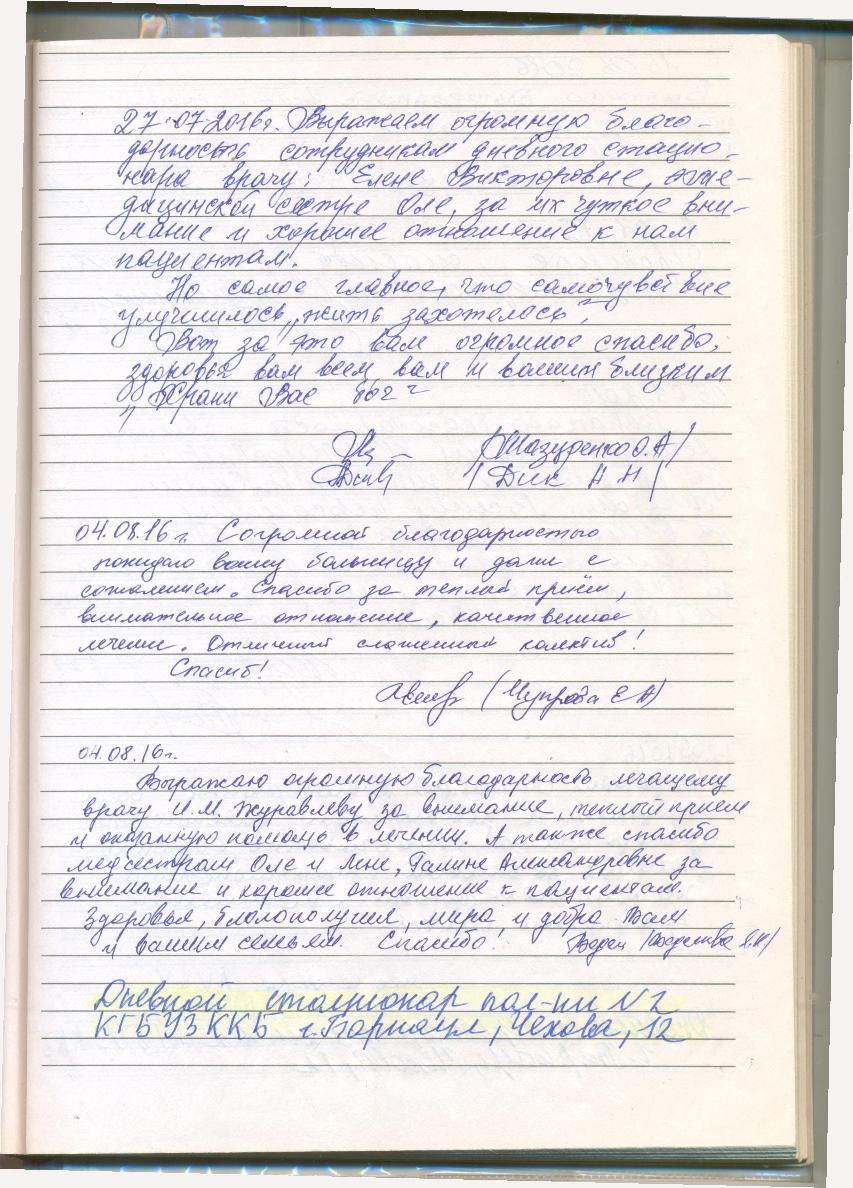 27.07.2016г. Выражаем огромную благо-
дарность сотрудникам дневного стацио-
нара врачу: Елене Викторовне,
дицинской сестре Оле, за их чуткое вни-
мание и хорошее отношение к нам
пациентам.
Но самое главное, что самочувствие
улучшилось, „жить захотелось".
Вот за это вам огромное спасибо,
здоровья вам всем, вам и вашим близким
„Храни Вас бог"
/Мазуренко О.А/
/Дик А Н/
04.08.16г. С огромной благодарностью
покидаю вашу больницу и даже с
сожалением. Спасибо за теплый приём,
внимательное отношение, качественное
лечение. Отличный слаженный колектив!
Спасиб!
04.08.16г.
Выражаю огромную благодарность лечащему
врачу И.М. Журавлеву за внимание, теплый прием
и оказанную помощь в лечении. А также спасибо
медсестрам Оле и Лене, Галине Александровне за
внимание и хорошее отношение к пациентам.
Здоровья, благополучия, мира и добра Вам
и вашим семьям. Спасибо.
Дневной стационар пол-ки N2
КГБУЗ ККБ г. Барнаул, Чехова, 12